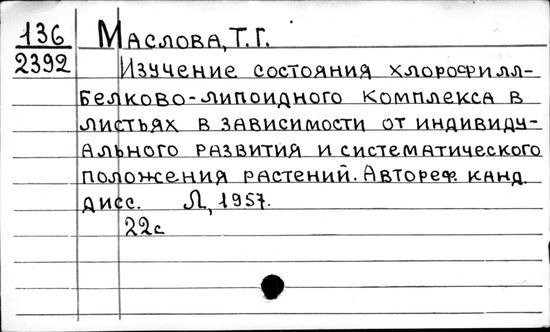 136 Маслова, Т.Г.
2392 Изучение состояния хлорофилл-
белково-липоидного комплекса в
листьях в зависимости от индивиду-
ального развития и систематического
положения растений. Автореф. канд.
дисс. Л, 1957.
22с